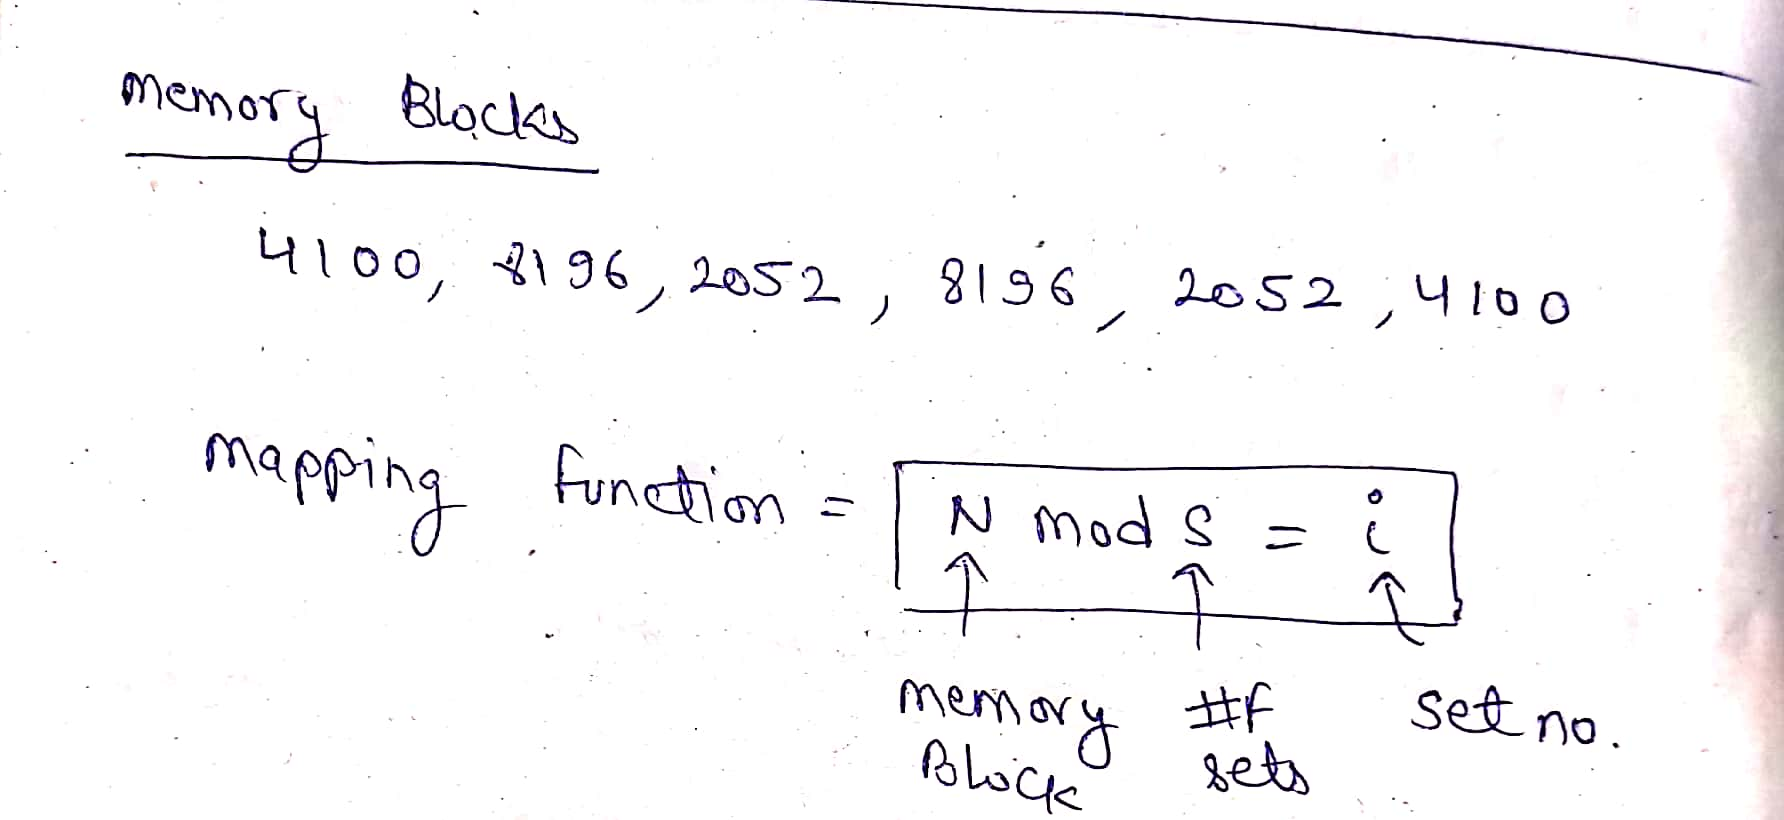 Memory Blocks
4100, 8196, 2052, 8196, 2052, 4100
Mapping function = N mod S = i
↑ ↑ ↑
memory #f set no.
Block sets